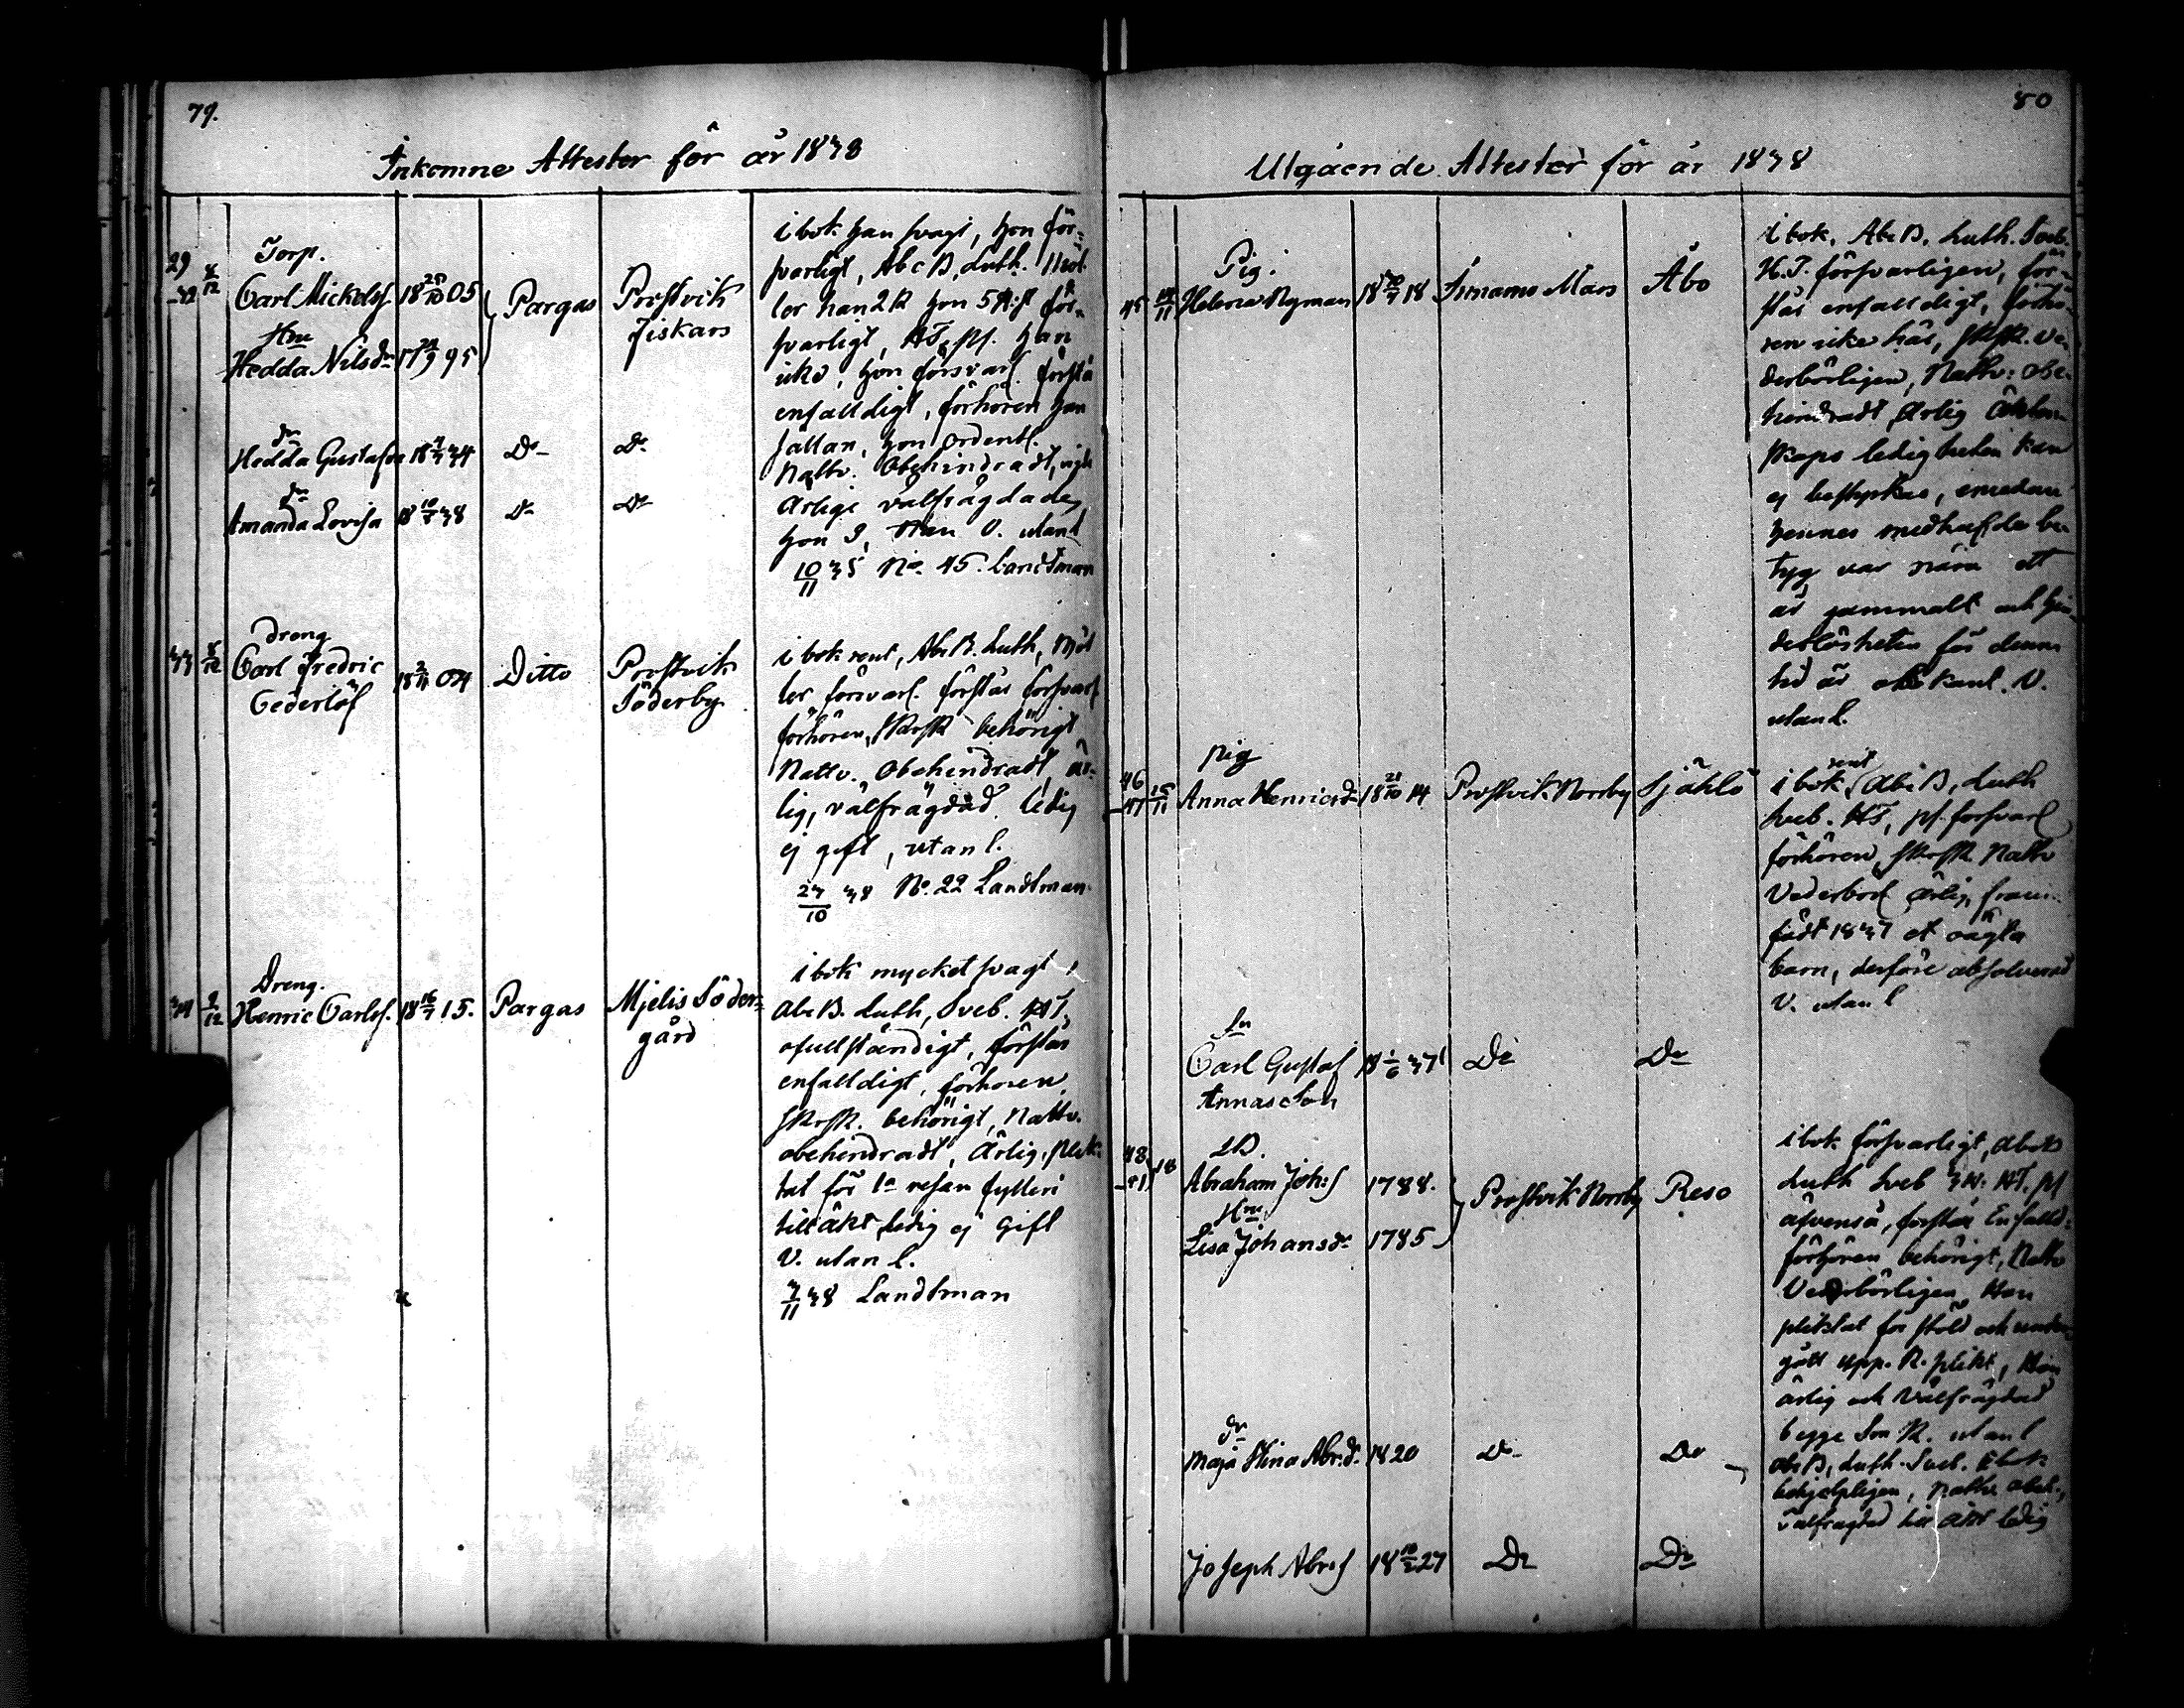 79.
Inkomne Attester för år 1838
29
-32
8/12
Torp.
Carl Mickelss.
18 25/10 05
Hm
Hedda Nilsdr
17 24/9 95
Pargas
Prostvik
Fiskars
i bok han svagt, hon för-
svarligt, Abc B, Luth.
lor han 2 k hon 5 k:st för-
svarligt, HT, ps. han
icke, hon försvarl. förstå
enfalldigt, förhören han
sällan, hon ordentl.
Nattv. Obehindradt,
ärlige välfrägdade,
hon S, Han V. utan l
10/11 35 No. 45. Landtman
dr
Hedda Gustafva
18 34
Do
Do
dr
Amanda Lovisa
18 38
Do
Do
33
8/12
Dreng
Carl Fredric
Cederlöf
18 04
Ditto
Prostvik
Söderby
i bok rent, Abc B. Luth,
lor försvarl. förstår försvarl
förhören, SkrSk behörigt
Nattv. Obehindradt, är-
lig, välfrägdad, ledig
ej gift, utan l.
27/10 38 No. 22 Landtman
34
9/12
Dreng.
Henric Carlss.
18 16/7 15.
Pargas
Mjelis Söder-
gård
i bok mycket svagt,
Abc B. Luth, Sveb. HT,
ofullständigt, förstår
enfalldigt, förhören
SkrSk. behörigt, Nattv.
obehindradt, Ärlig, plik-
tat för 1a resan fylleri
till äkt. ledig ej gift
V. utan l.
3/11 38 Landtman
80
Utgående Attester för år 1838
45
14/11
Pig.
Helena Nyman
18 18
Åbo
i bok, Abc B, Luth. Sveb.
H.T. försvarligen, för-
står enfalldigt, förhö-
ren icke här, SkrSk. ve-
derbörligen, Nattv: obe-
hindradt Ärlig äkten-
skaps ledigheten kan
ej bestyrkas, emedan
hennes medhafde be-
tyg var nära ett
år gammalt och hin-
derlösheten för denna
tid är obekant. V.
utan l.
46
-47
15/11
pig
Anna Henricsdr
18 21/10 14
Prostvik Norrby
Själö
rent
i bok, Abc B, Luth
Sveb. HT, ps. försvarl
förhören, SkrSk Nattv
Vederbörl ärlig, fram-
födt 1837 et oägta
barn, derföre absolverad
V. utan l
Sn
Carl Gustaf
Annas Son
18 1/6 37
Do
Do
48
-51
18
Abraham Johss
1788.
Hm
Lisa Johansdr
1785
Prostvik Norrby
Reso
i bok försvarligt, abc B
Luth Sveb HT. ps
äfvenså, förstår Enfalld-
förhören behörigt, Nattv
Vederbörligen, Han
pliktat för stöld och under-
gått upp. K. plikt, Hon
ärlig och Välfrägdad
begge utan l
Dr
Maja Stina Abr:dr
1820
Do
Do
abc B, Luth. Sveb.
behjelpligen, Nattv.
välfrägdad till äkt ledig
Joseph Abr:s
18 27
Do
Do